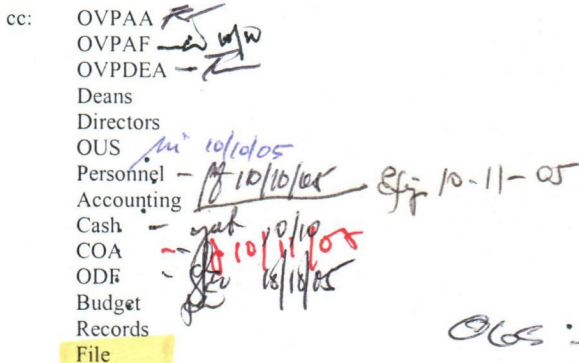 cc: OVPAA
OVPAF
OVPDEA
Deans
Directors
OUS 10/10/05
Personnel - 10/10/05
Accounting 10-11-05
Cash - 10/10
COA - 10/11/05
ODF -
Budget
Records
File